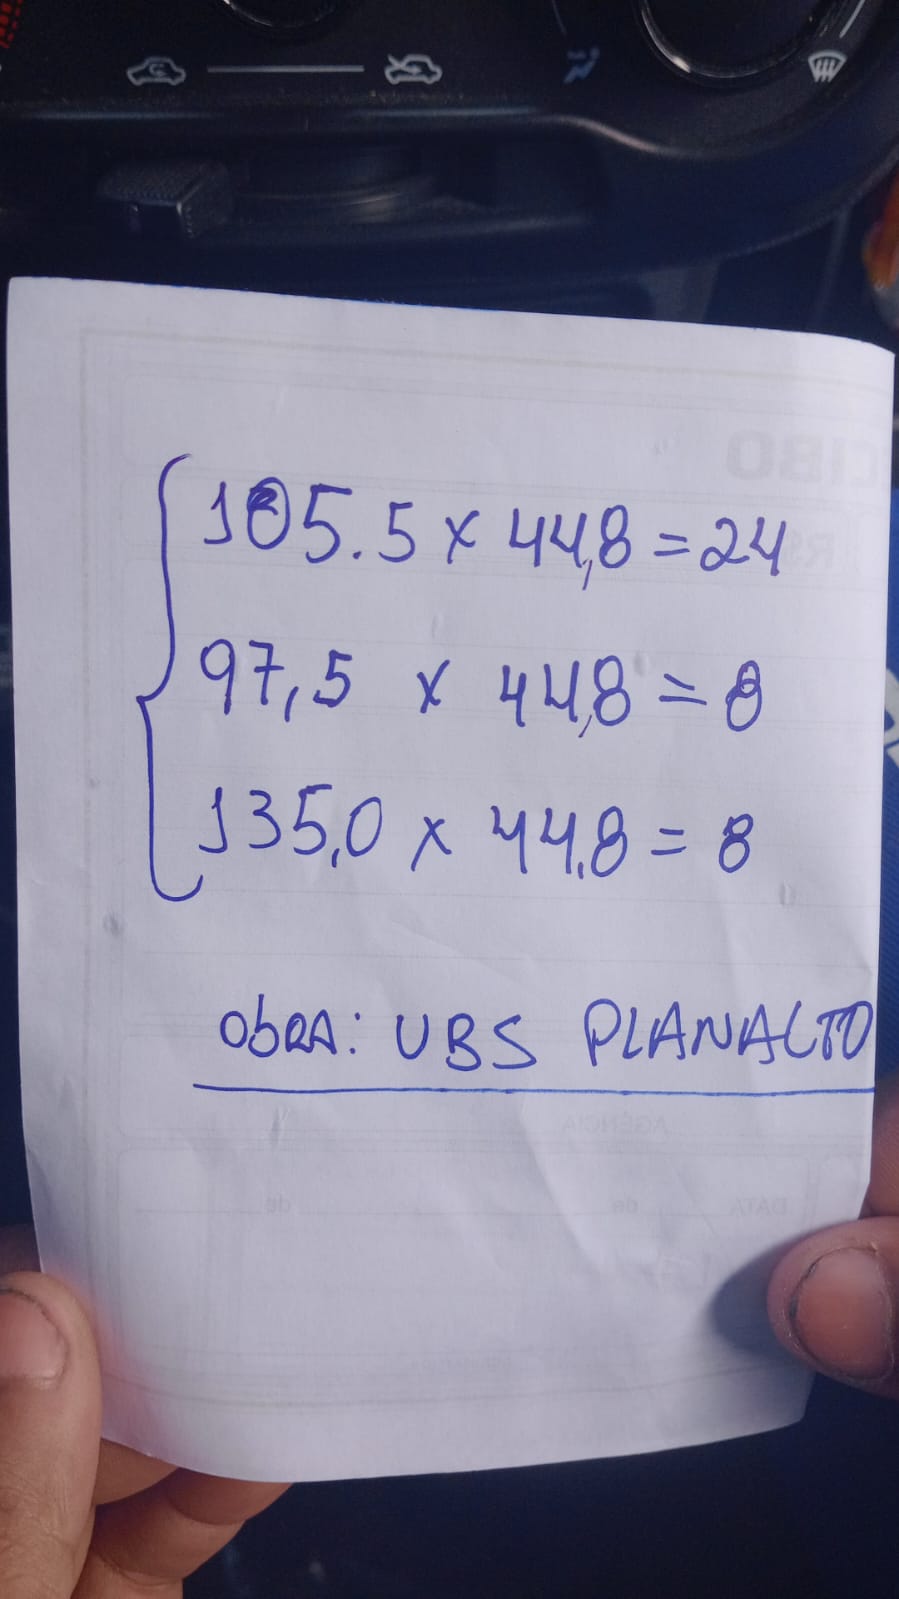 105.5 x 44,8 = 24
97,5 x 44,8 = 8
135,0 x 44,8 = 8
ObRA: UBS PLANALTO